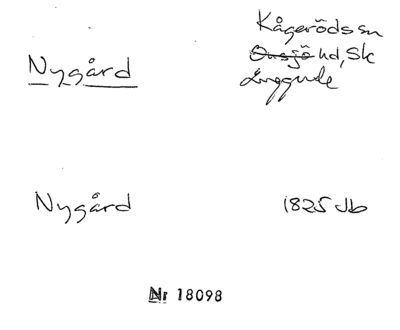 Kågeröds sn
Nygård
Onsjö hd, Sk
Luggude
Nygård
1825 Jb
Nr 18098